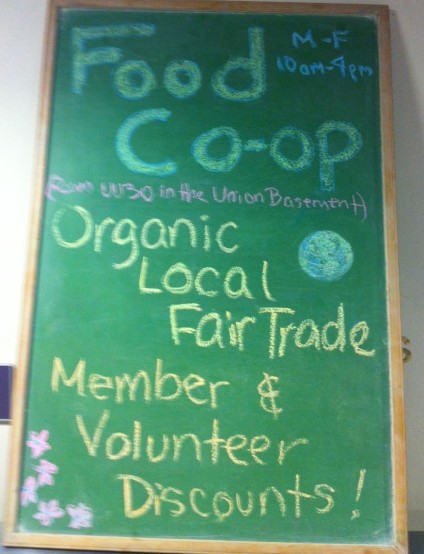 Food
M-F
10am-4pm
Co-op
(Room UU30 in the Union Basement)
Organic
Local
Fair Trade
Member &
Volunteer
Discounts!